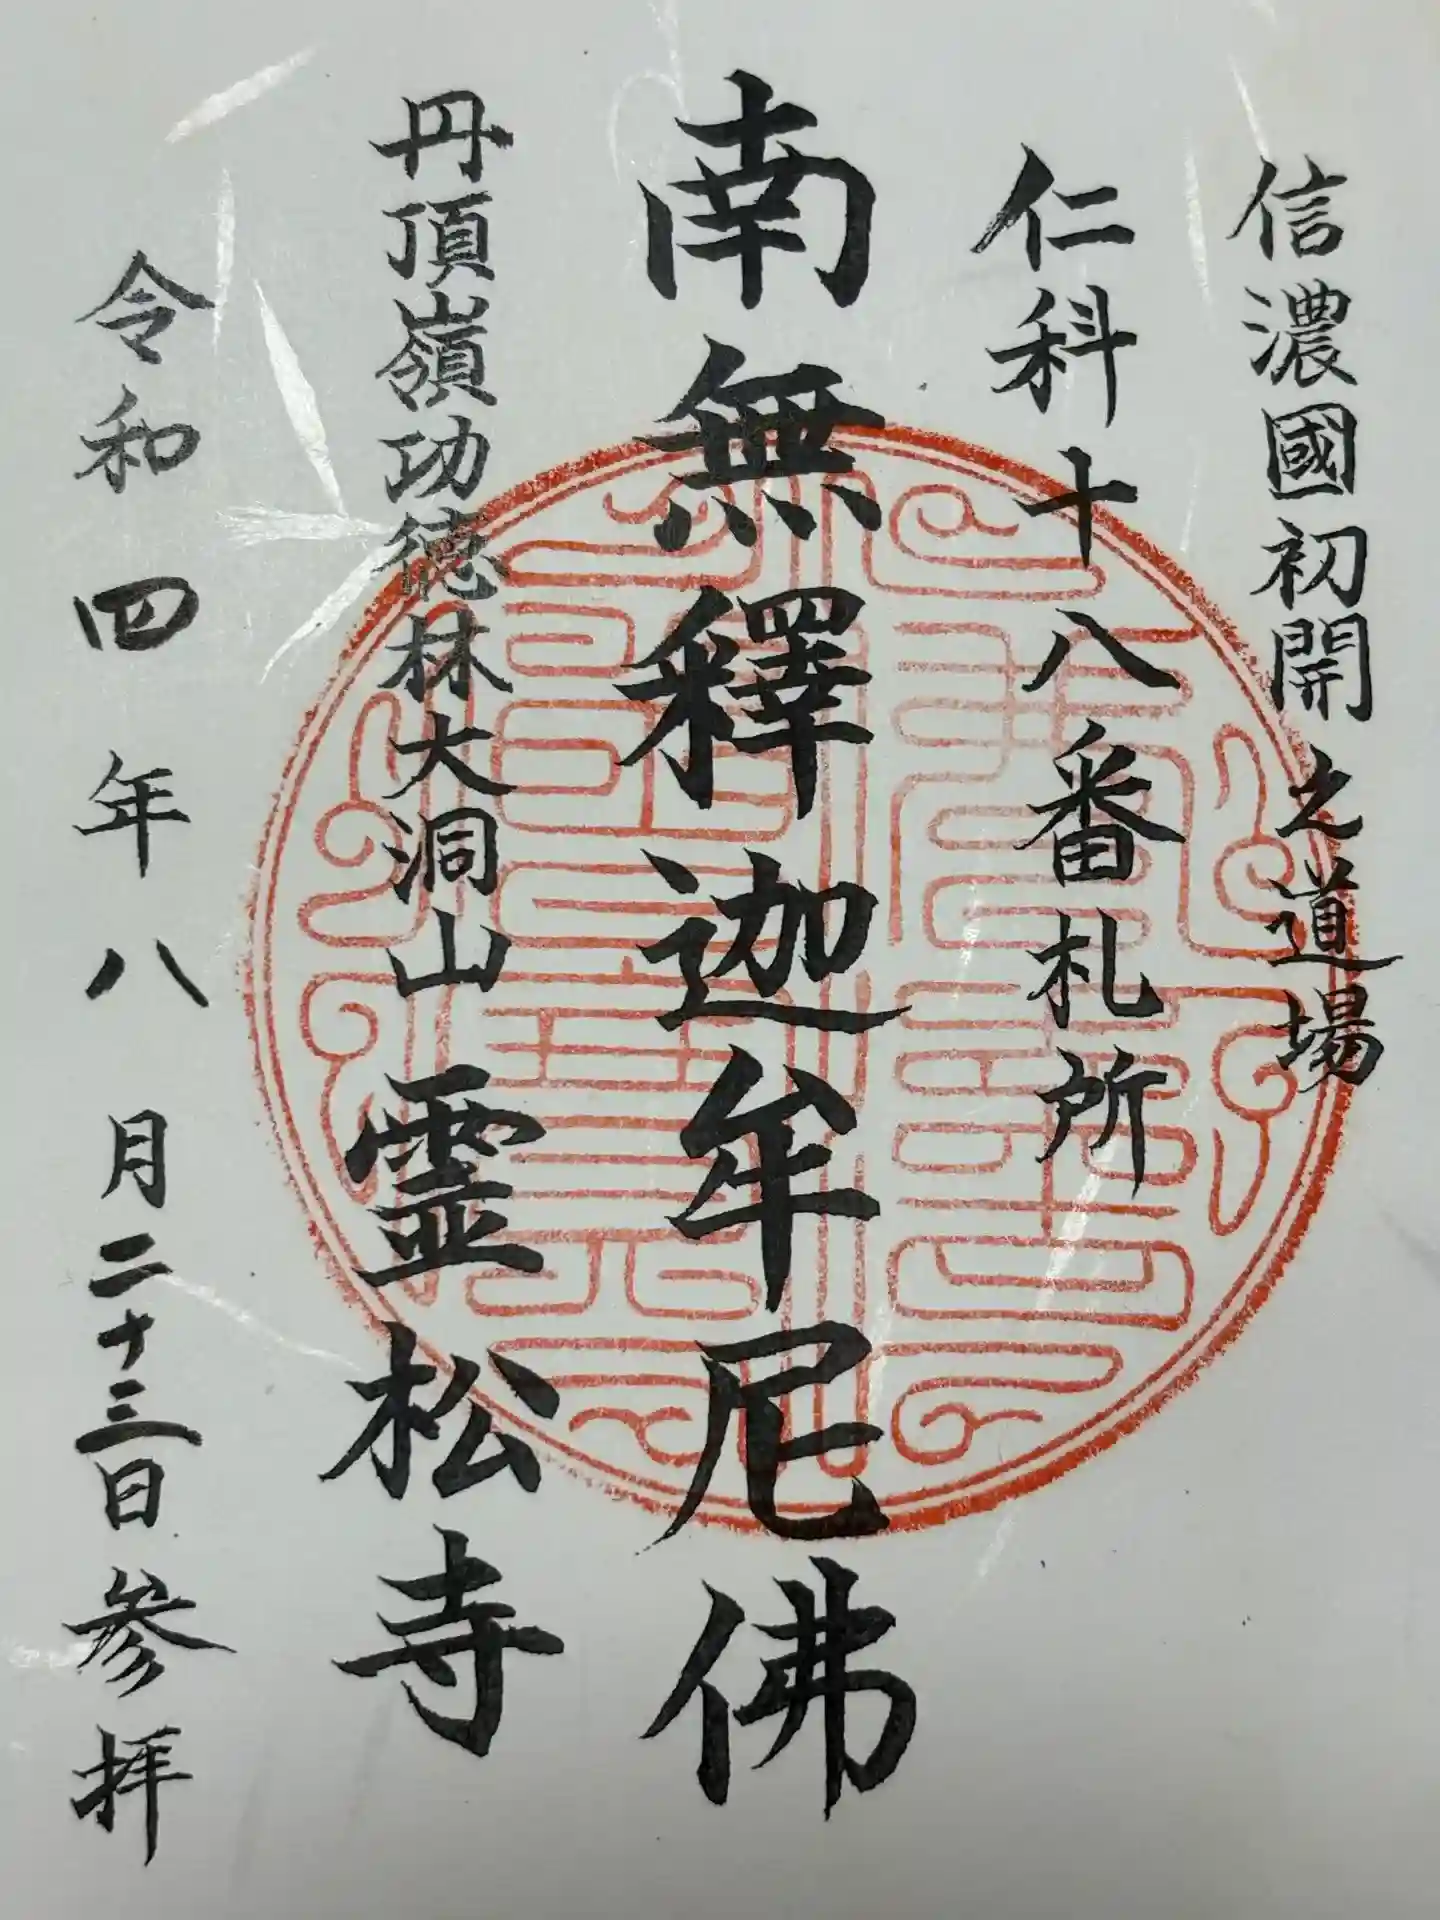 信濃國初開之道場
仁科十八番札所
南無釋迦牟尼佛
丹頂嶺功徳林大洞山霊松寺
令和四年八月二十三日参拝